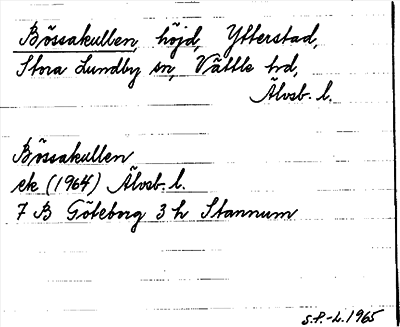 Bössakullen, höjd, Ytterstad,
Stora Lundby sn, Vättle hd,
Älvsb. l.
Bössakullen
ek (1964) Älvsb. l.
7 B Göteborg 3 h Stannum
S.P.-L. 1965